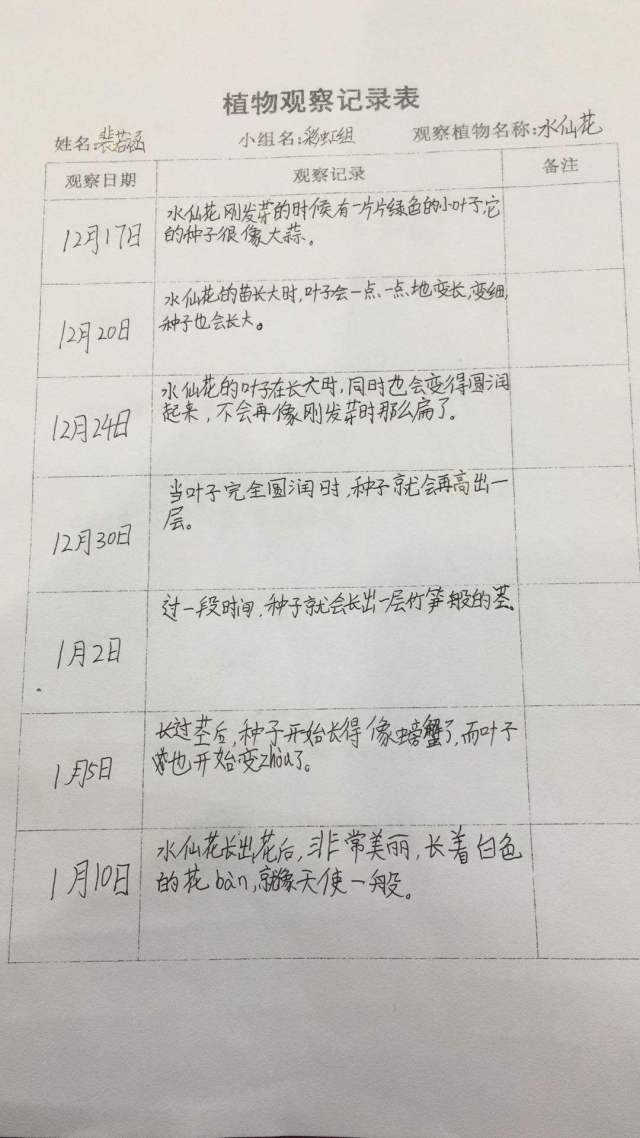 植物观察记录表
姓名:裴若涵 小组名:彩虹组 观察植物名称:水仙花
观察日期 观察记录 备注
12月17日
水仙花刚发芽的时候有一片片绿色的小叶子,它
的种子很像大蒜。
12月20日
水仙花的苗长大时,叶子会一点、一点地变长,变细,
种子也会长大。
12月24日
水仙花的叶子在长大时,同时也会变得圆润
起来,不会再像刚发芽时那么扁了。
12月30日
当叶子完全圆润时,种子就会再高出一
层。
1月2日
过一段时间,种子就会长出一层竹笋般的茎.
1月5日
长过茎后,种子开始长得像螃蟹了,而叶子
也开始变zhòu了。
1月10日
水仙花长出花后,非常美丽,长着白色
的花bàn,就像天使一般。